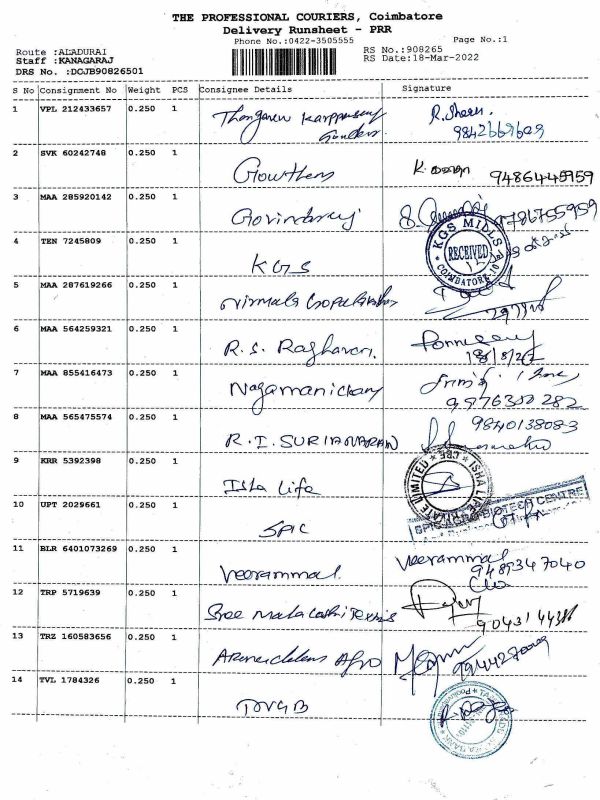 THE PROFESSIONAL COURIERS, Coimbatore
Delivery Runsheet - PRR
Phone No.:0422-3505555
Page No.:1
Route :ALADURAI
Staff :KANAGARAJ
DRS No. :DCJB90826501
RS No.:908265
RS Date:18-Mar-2022
S No Consignment No Weight PCS Consignee Details Signature
1 VPL 212433657 0.250 1
R. 
9842669609
2 SVK 60242748 0.250 1 Gowthem
9486445959
3 MAA 285920142 0.250 1 Govindaraj
9786755959
4 TEN 7245809 0.250 1 KGS
KGS MILLS RECEIVED COIMBATORE
5 MAA 287619266 0.250 1 Nirmala Gopalakrishnan
6 MAA 564259321 0.250 1 R. S. Raghavan.
7 MAA 855416473 0.250 1 Nagamanickam
9976350282
8 MAA 565475574 0.250 1 R. I. SURIANARAN
9840138083
9 KRR 5392398 0.250 1 Isha Life
ISHA LIFE PRIVATE LIMITED CBE
10 UPT 2029661 0.250 1 SPIC
SPIC AGRO BIOTECH CENTRE
11 BLR 6401073269 0.250 1 Veerammal.
Veerammal
9489347040
12 TRP 5719639 0.250 1 Sree
13 TRZ 160583656 0.250 1
14 TVL 1784326 0.250 1 TNGB